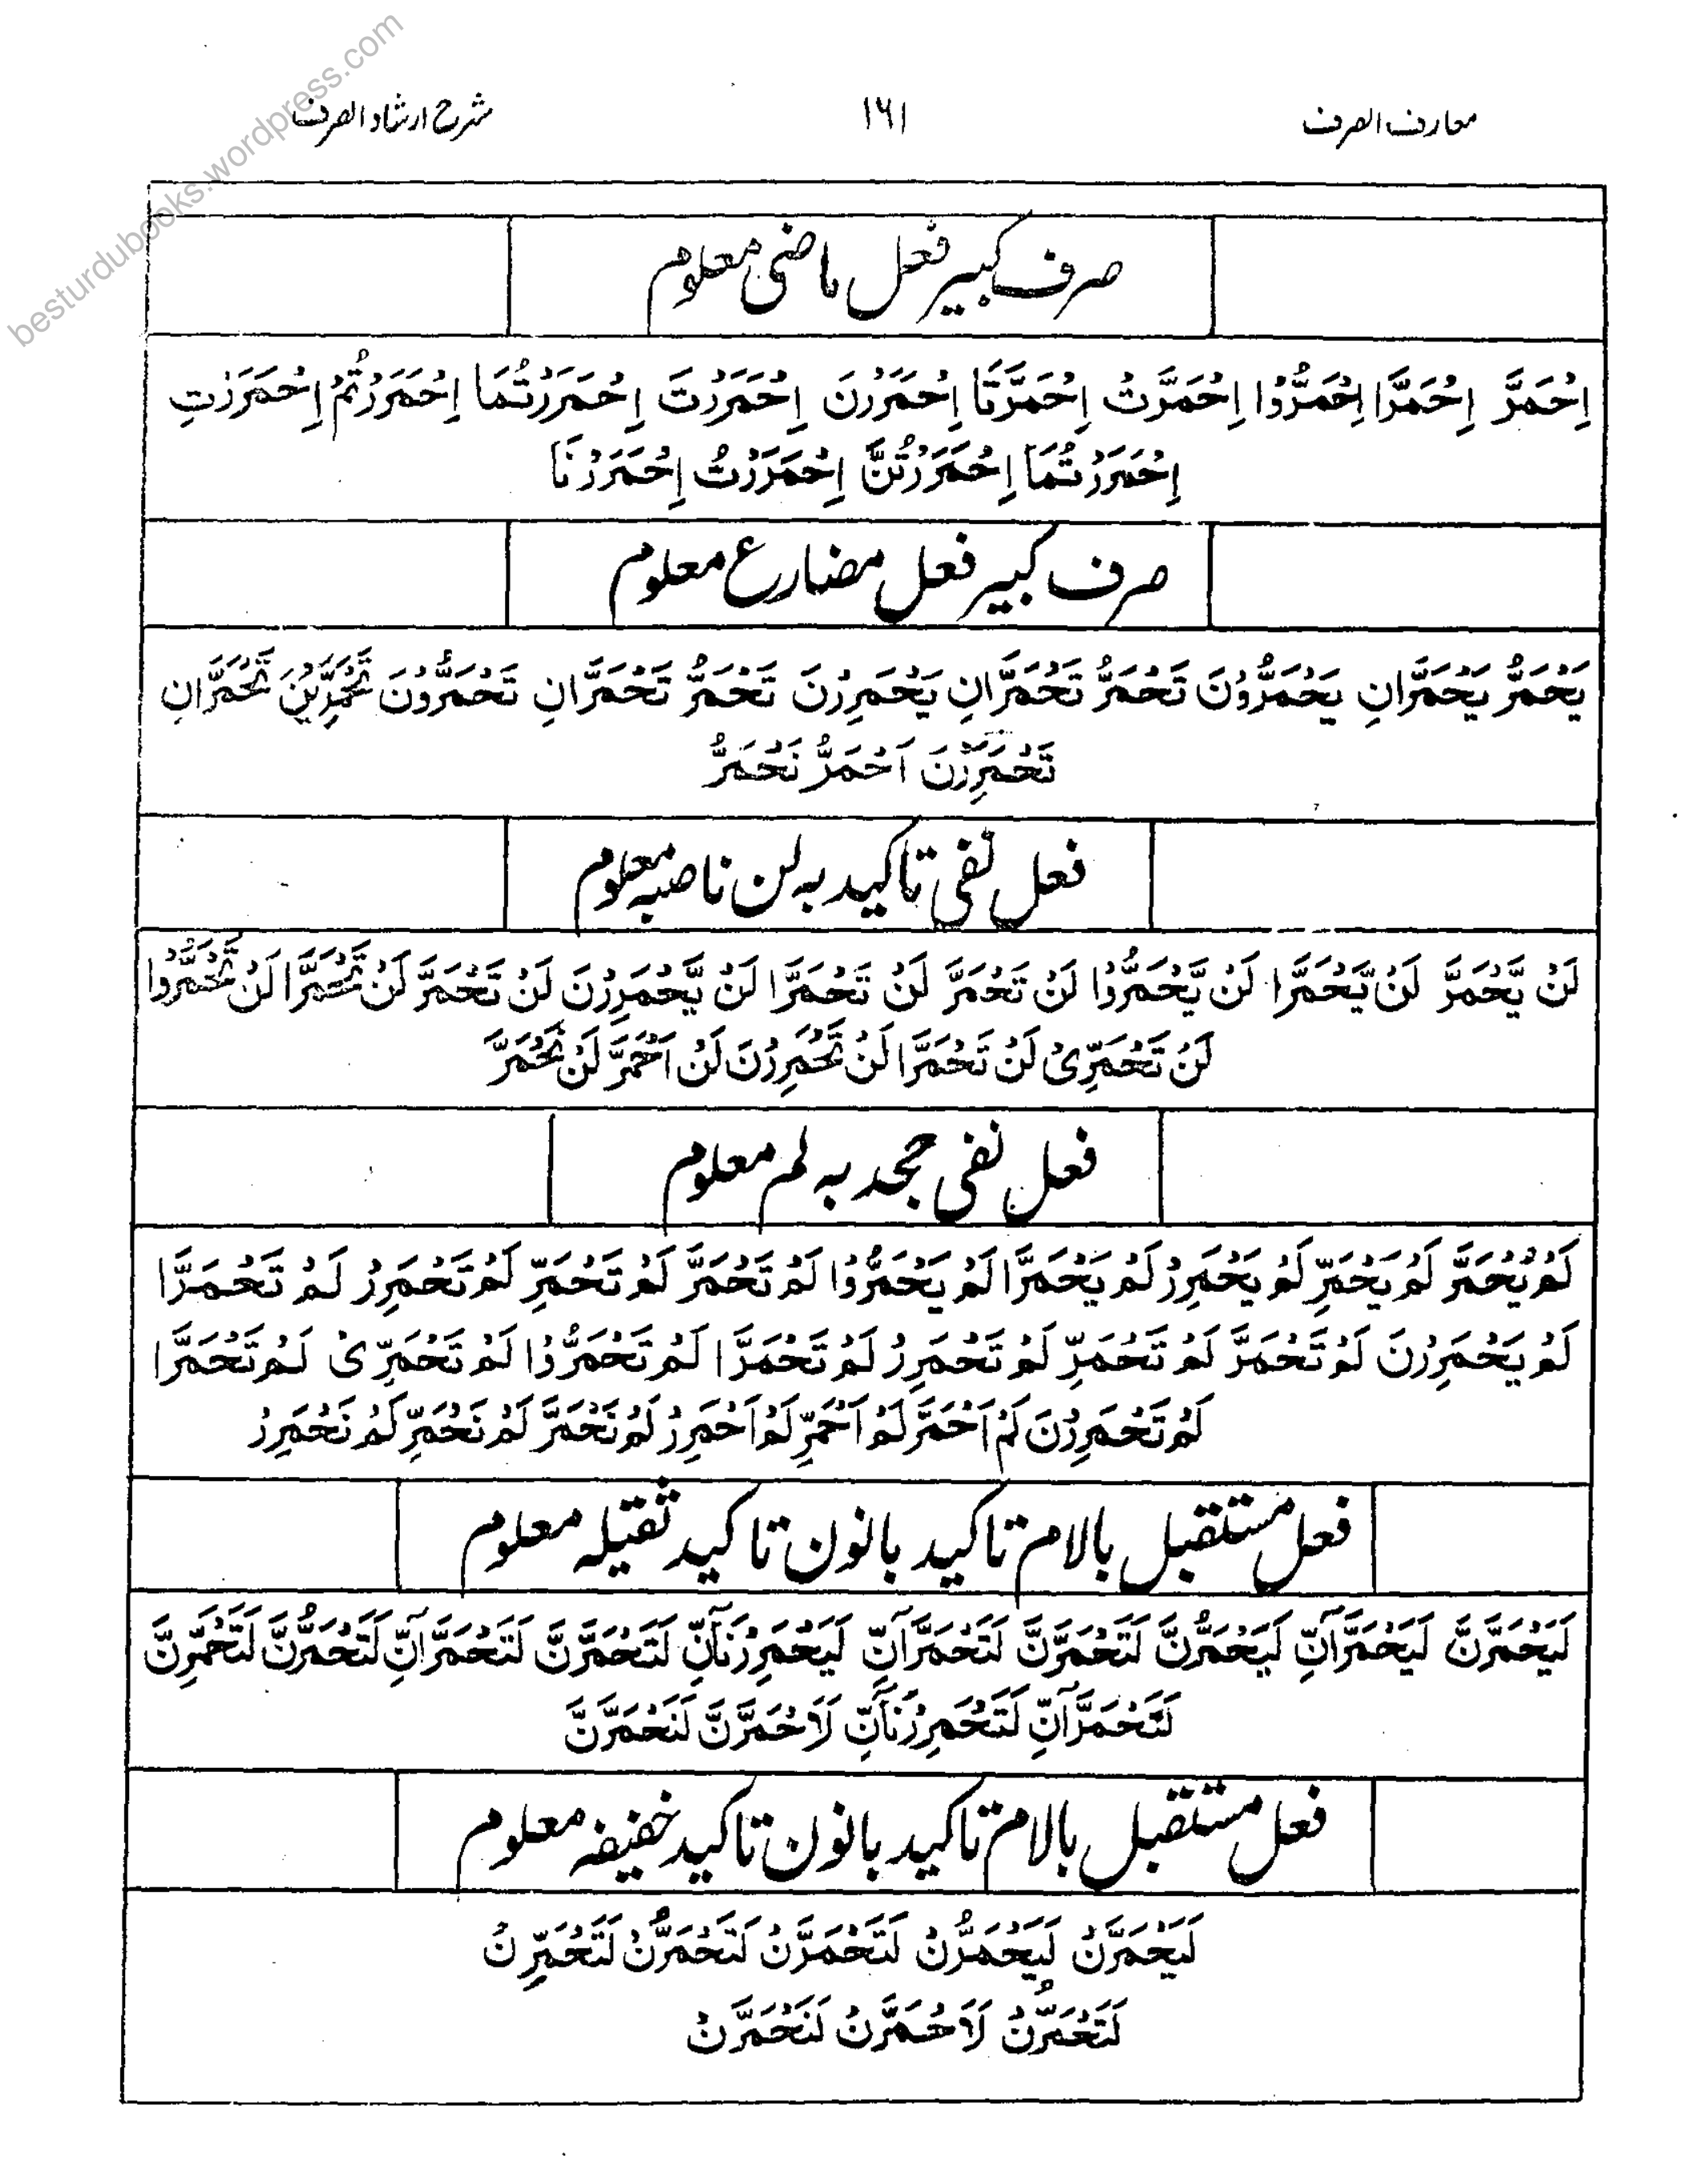 معارف الصرف ۱۶۱ شرح ارشاد الصرف
besturdubooks.wordpress.com
صرف کبیر فعل ماضی معلوم
اِحْمَرَّ اِحْمَرَّا اِحْمَرُّوْا اِحْمَرَّتْ اِحْمَرَّتَا اِحْمَرَرْنَ اِحْمَرَرْتَ اِحْمَرَرْتُمَا اِحْمَرَرْتُمْ اِحْمَرَرْتِ
اِحْمَرَرْتُمَا اِحْمَرَرْتُنَّ اِحْمَرَرْتُ اِحْمَرَرْنَا
صرف کبیر فعل مضارع معلوم
يَحْمَرُّ يَحْمَرَّانِ يَحْمَرُّوْنَ تَحْمَرُّ تَحْمَرَّانِ يَحْمَرِرْنَ تَحْمَرُّ تَحْمَرَّانِ تَحْمَرُّوْنَ تَحْمَرِّيْنَ تَحْمَرَّانِ
تَحْمَرِرْنَ اَحْمَرُّ نَحْمَرُّ
فعل نفی تاکید بہ لن ناصبہ معلوم
لَنْ يَّحْمَرَّ لَنْ يَّحْمَرَّا لَنْ يَّحْمَرُّوْا لَنْ تَحْمَرَّ لَنْ تَحْمَرَّا لَنْ يَّحْمَرِرْنَ لَنْ تَحْمَرَّ لَنْ تَحْمَرَّا لَنْ تَحْمَرُّوْا
لَنْ تَحْمَرِّىْ لَنْ تَحْمَرَّا لَنْ تَحْمَرِرْنَ لَنْ اَحْمَرَّ لَنْ نَحْمَرَّ
فعل نفی جحد بہ لم معلوم
لَمْ يَحْمَرَّ لَمْ يَحْمَرِّ لَمْ يَحْمَرِرْ لَمْ يَحْمَرَّا لَمْ يَحْمَرُّوْا لَمْ تَحْمَرَّ لَمْ تَحْمَرِّ لَمْ تَحْمَرِرْ لَمْ تَحْمَرَّا
لَمْ يَحْمَرِرْنَ لَمْ تَحْمَرَّ لَمْ تَحْمَرِّ لَمْ تَحْمَرِرْ لَمْ تَحْمَرَّا لَمْ تَحْمَرُّوْا لَمْ تَحْمَرِّىْ لَمْ تَحْمَرَّا
لَمْ تَحْمَرِرْنَ لَمْ اَحْمَرَّ لَمْ اَحْمَرِّ لَمْ اَحْمَرِرْ لَمْ نَحْمَرَّ لَمْ نَحْمَرِّ لَمْ نَحْمَرِرْ
فعل مستقبل بالام تاکید بانون تاکید ثقیلہ معلوم
لَيَحْمَرَّنَّ لَيَحْمَرَّآنِّ لَيَحْمَرُّنَّ لَتَحْمَرَّنَّ لَتَحْمَرَّآنِّ لَيَحْمَرِرْنَآنِّ لَتَحْمَرَّنَّ لَتَحْمَرَّآنِّ لَتَحْمَرُّنَّ لَتَحْمَرِّنَّ
لَتَحْمَرَّآنِّ لَتَحْمَرِرْنَآنِّ لَاَحْمَرَّنَّ لَنَحْمَرَّنَّ
فعل مستقبل بالام تاکید بانون تاکید خفیفہ معلوم
لَيَحْمَرَّنْ لَيَحْمَرُّنْ لَتَحْمَرَّنْ لَتَحْمَرُّنْ لَتَحْمَرِّنْ
لَتَحْمَرُّنْ لَاَحْمَرَّنْ لَنَحْمَرَّنْ